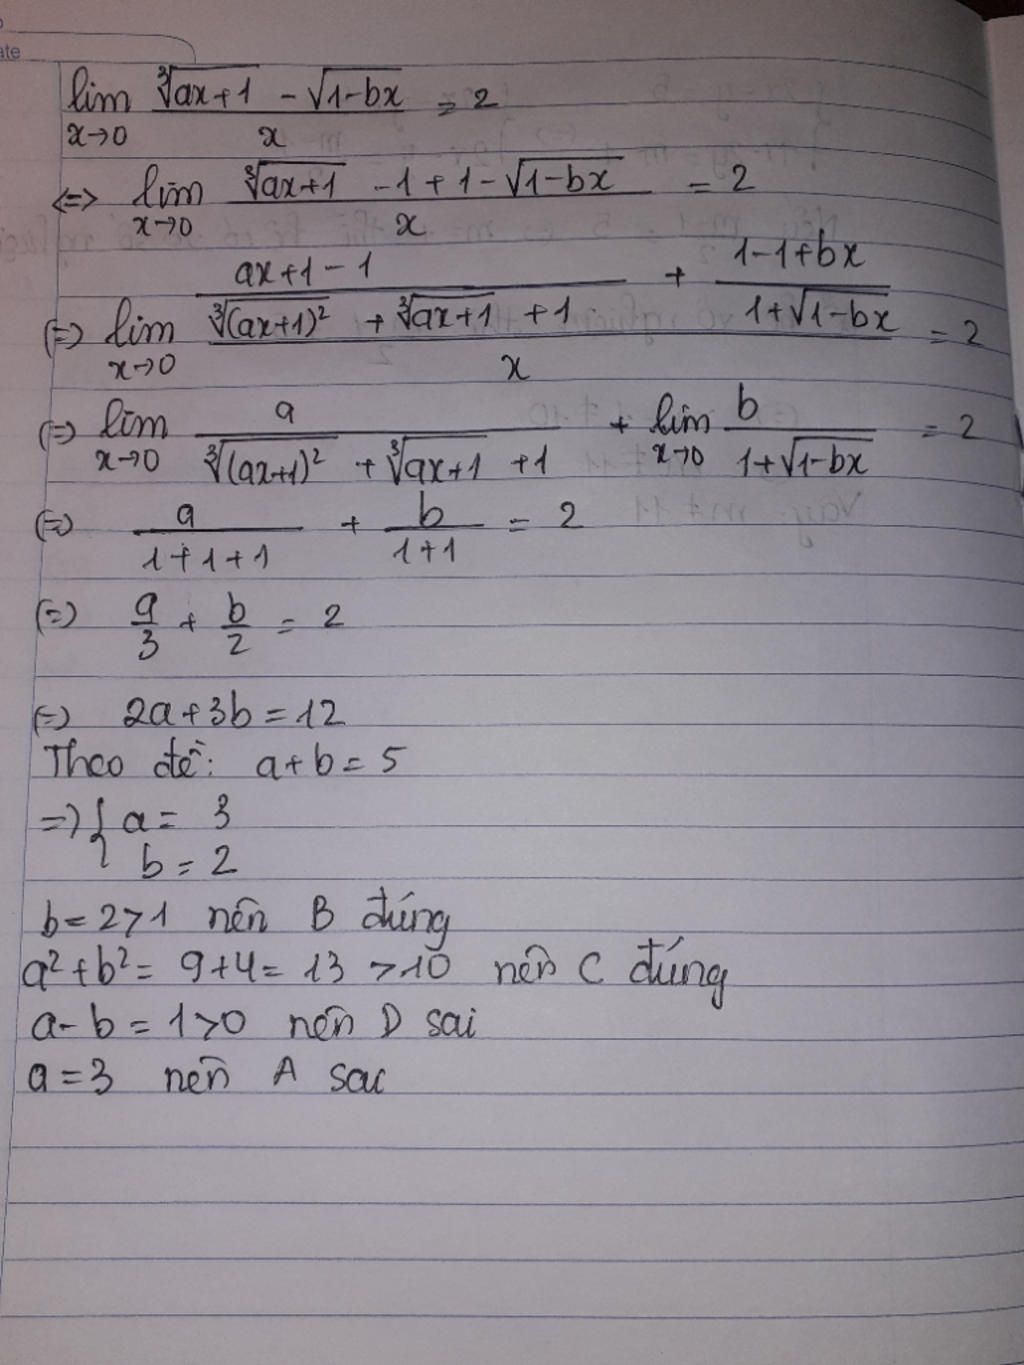 ate
lim_{x→0} (∛(ax+1) - √(1-bx))/x = 2
(=) lim_{x→0} (∛(ax+1) - 1 + 1 - √(1-bx))/x = 2
(=) lim_{x→0} ((ax+1-1)/(∛(ax+1)² + ∛(ax+1) + 1) + (1-1+bx)/(1+√(1-bx)))/x = 2
(=) lim_{x→0} a/(∛(ax+1)² + ∛(ax+1) + 1) + lim_{x→0} b/(1+√(1-bx)) = 2
(=) a/(1+1+1) + b/(1+1) = 2
(=) a/3 + b/2 = 2
(=) 2a+3b=12
Theo đề: a+b=5
=> { a = 3
b = 2
b=2>1 nên B đúng
a²+b²= 9+4=13 >10 nên C đúng
a-b=1>0 nên D sai
a=3 nên A sai